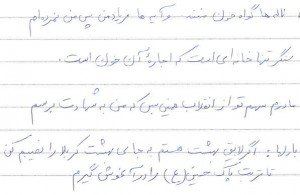 لاله ها گواه خون منند و آیه ها فریاد من پس من نمرده ام
سنگر تنها خانه ای است که اجاره آن خون است .
مادرم سهم تو از انقلاب همین بس که من به شهادت برسم
بارلها اگر لایق بهشت هستم به جای بهشت کربلا را نصیبم کن
تا تربت پاک حسین (ع) را در آغوش گیرم